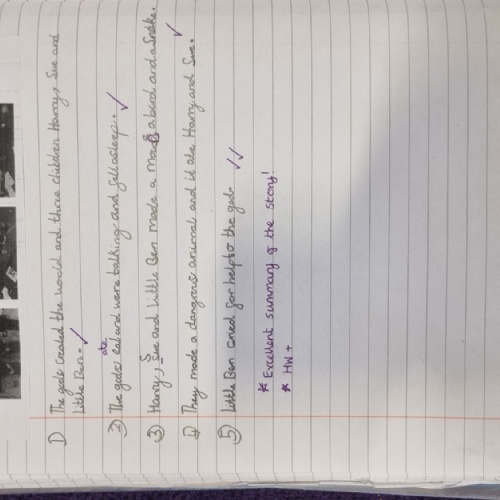 1) The gods created the world and three children Harry, Sue and
Little Ben. ✓
ate
2) The gods eat and were talking and fell asleep. ✓
S
3) Harry, Sue and Little Ben made a mouse, a bird and a Snake.
4) They made a dangerous animal and it ate Harry and Sue. ✓
5) Little Ben cried for help to the gods. ✓✓
* Excellent summary of the story!
* HW +